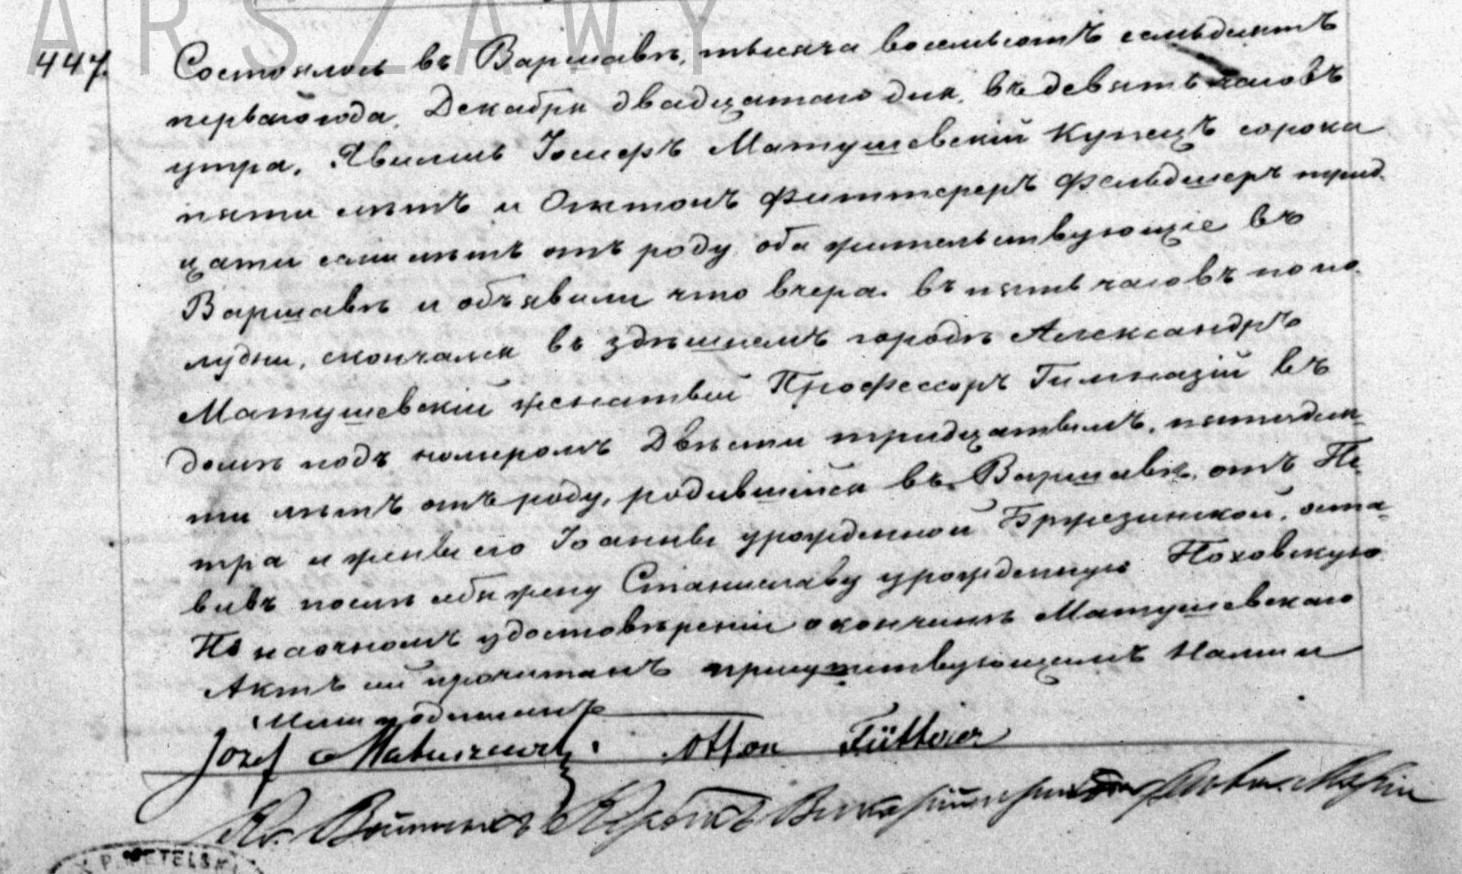 ARSZAWY
447.
Состоялось въ Варшавѣ, тысяча восемьсотъ семьдесятъ
перваго года, Декабря двадцатаго дня, въ девять часовъ
утра, Явились Іосифъ Матушевскій Купецъ сорока
пяти лѣтъ и Оттонъ Фиттереръ Фельдшеръ трид-
цати семи лѣтъ отъ роду, оба жительствующіе въ
Варшавѣ и объявили что вчера въ пять часовъ по по-
лудни, скончался въ здѣшнемъ городѣ Александръ
Матушевскій женатый Профессоръ Гимназій въ
домѣ подъ номеромъ Двѣсти тридцатымъ, пятидеся-
ти лѣтъ отъ роду, родившійся въ Варшавѣ, отъ Пе-
тра и жены его Іоанны урожденной Бржезинской, оста-
вивъ послѣ себя жену Станиславу урожденную Поховскую
По наочномъ удостовѣреніи о кончинѣ Матушевскаго
Актъ сей прочитанъ присутствующимъ Нами и
ими подписанъ
Józef Matuszewski Otton Fütterer
Кс. Войцехъ
P. METELSKI